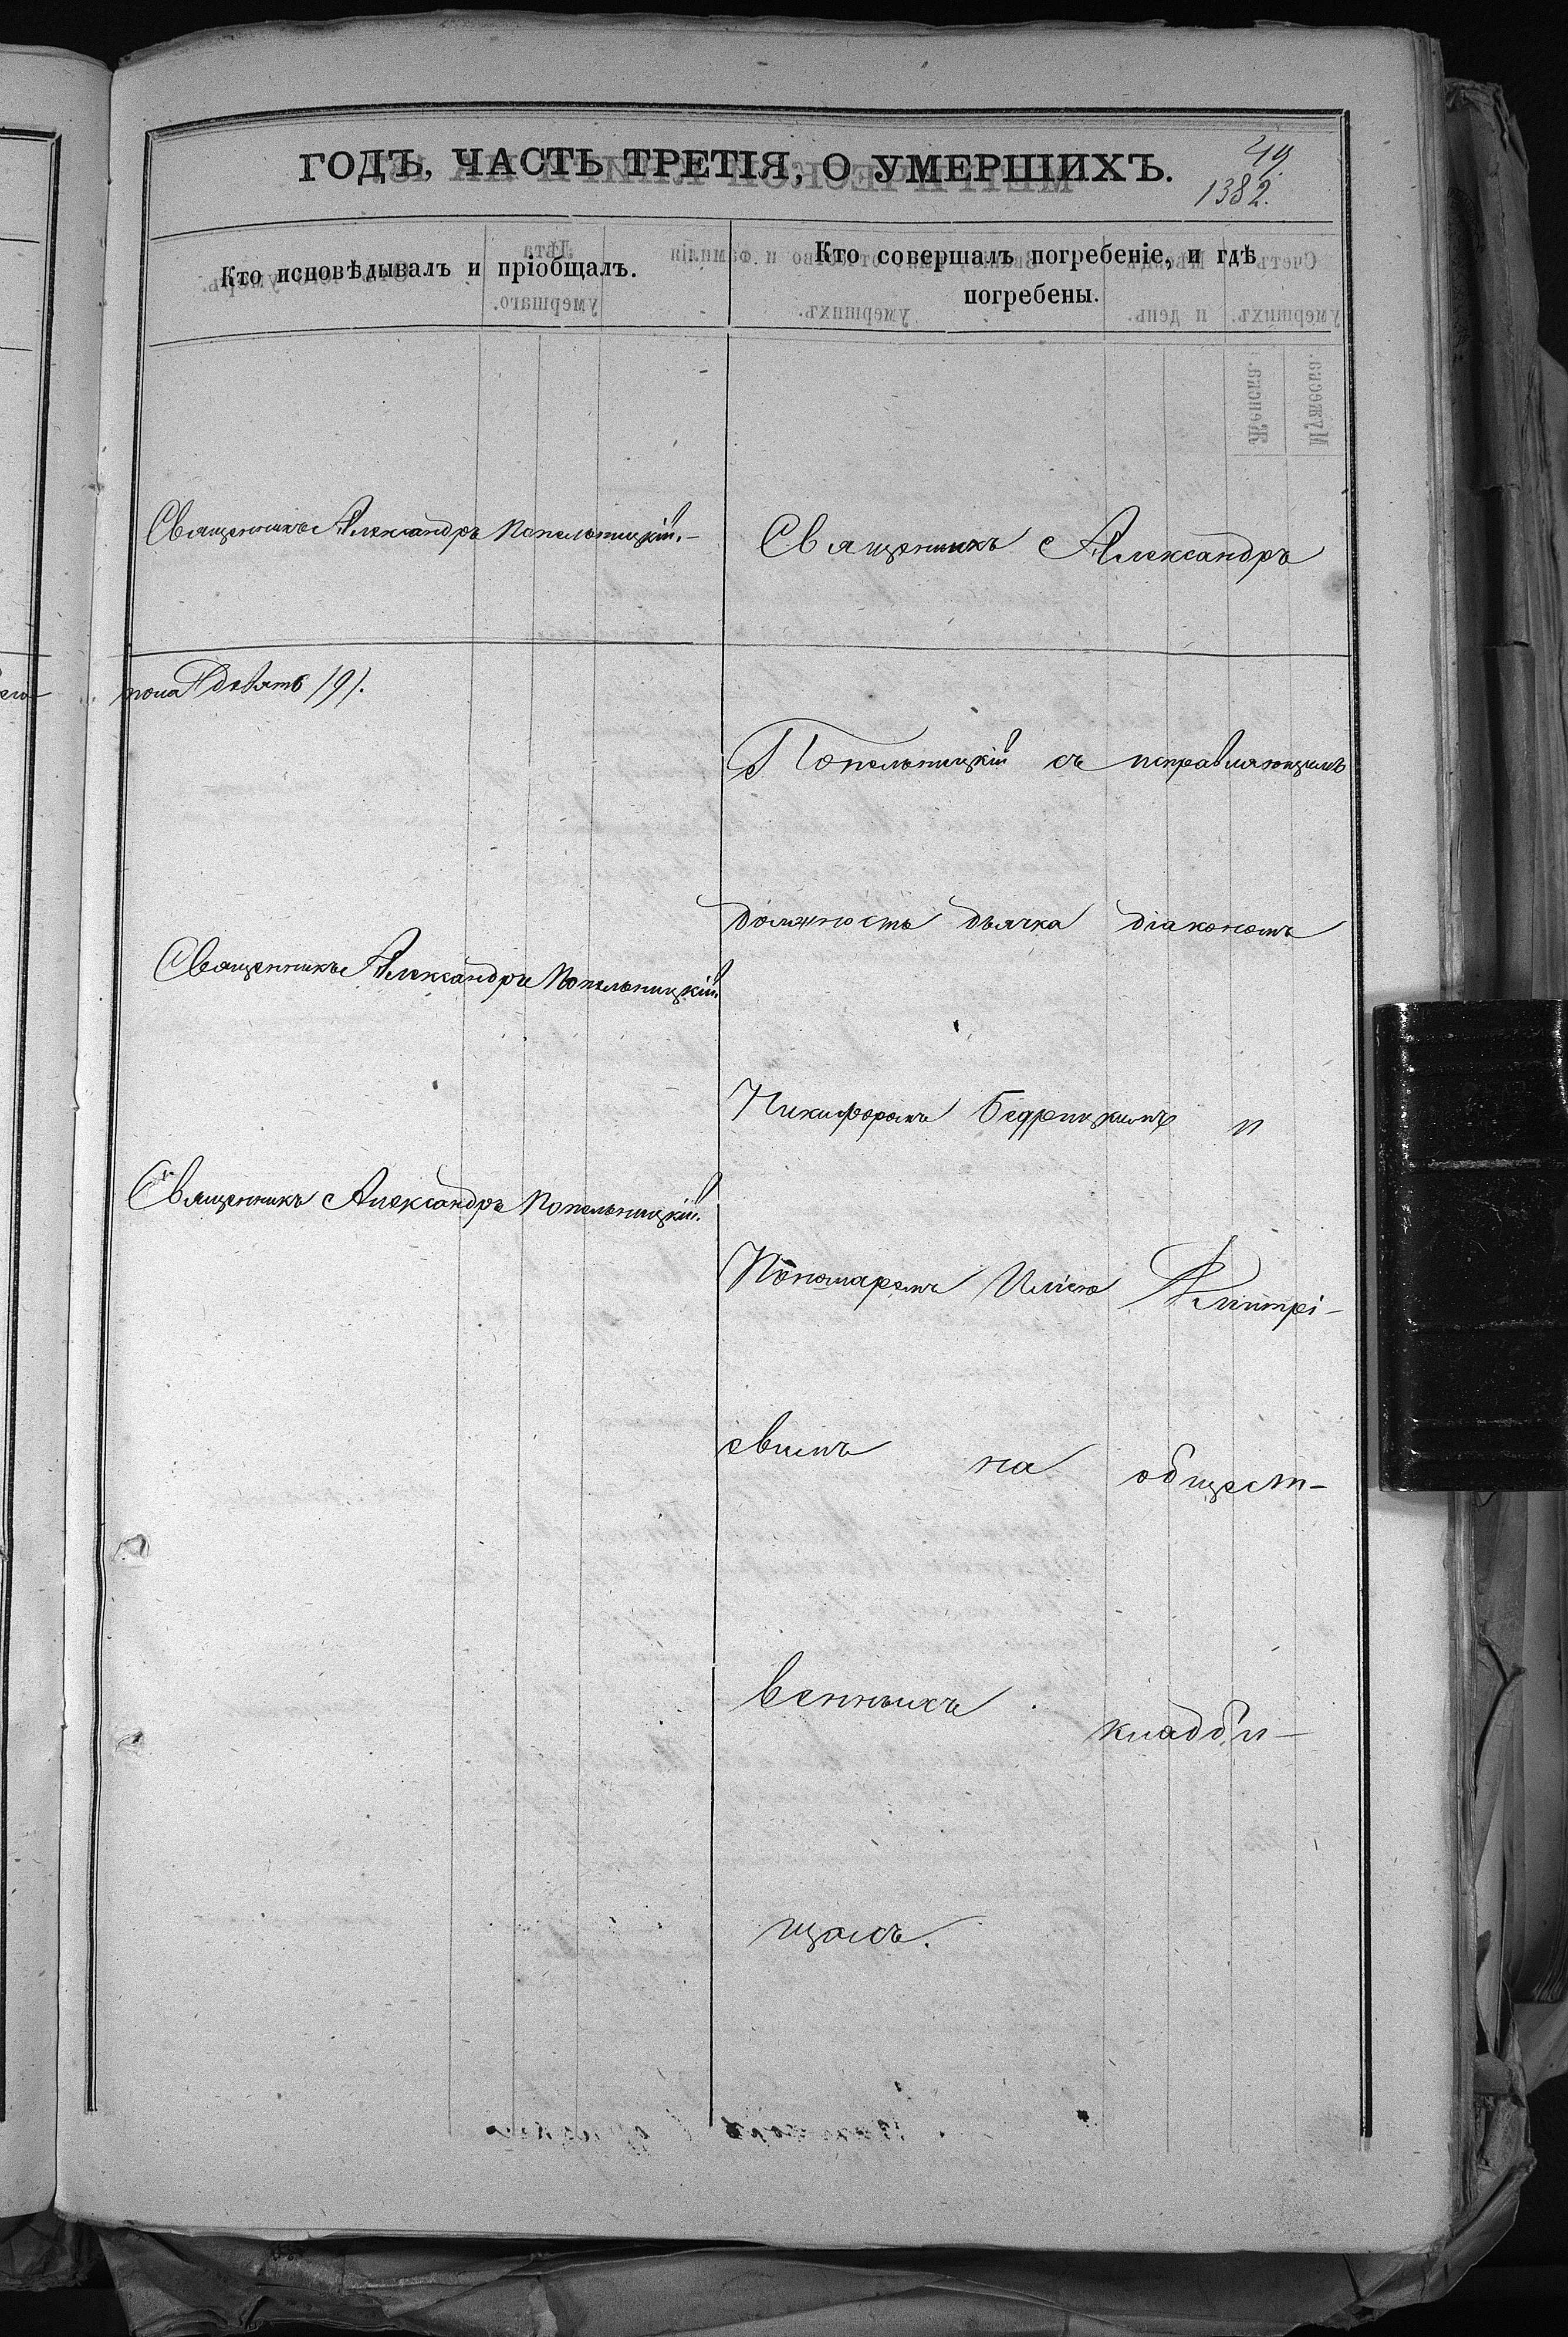 ГОДЪ, ЧАСТЬ ТРЕТІЯ, О УМЕРШИХЪ.
49.
1382.
Кто исповѣдывалъ и пріобщалъ.
Кто совершалъ погребеніе, и гдѣ
погребены.
Священникъ Александръ Попельницкій.-
пола девять /9/.
Священникъ Александръ Попельницкій.
Священникъ Александръ Попельницкій.
Священникъ Александръ
Попельницкій съ исправляющимъ
должность дьячка діакономъ
Никифоромъ Бедрицкимъ и
Пономаремъ Иліею
евымъ на общест-
венныхъ кладби-
щахъ.